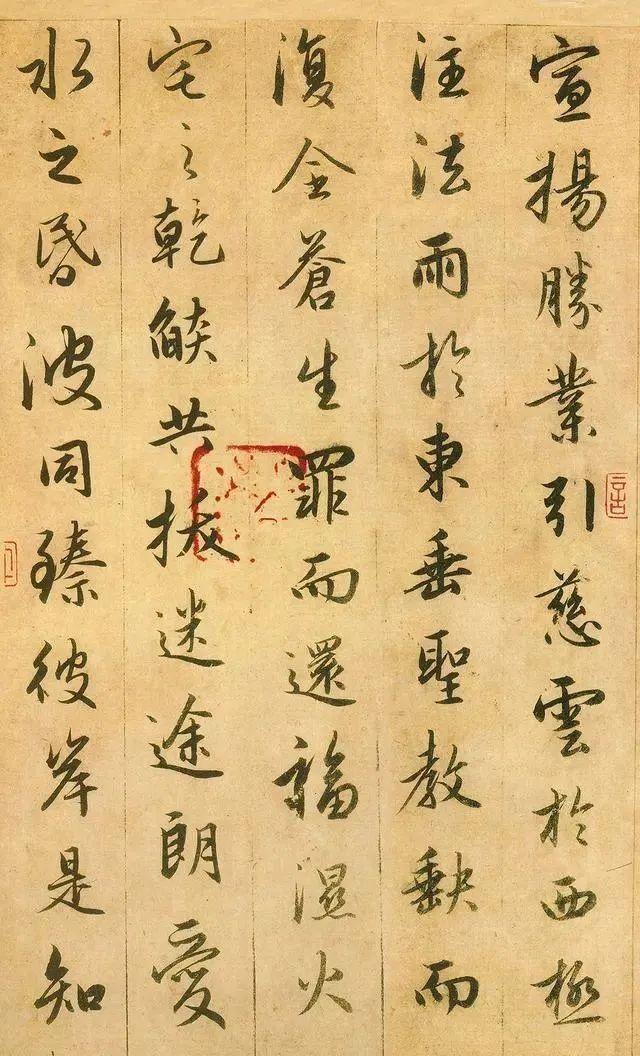 宣揚勝業引慈雲於西極
注法雨於東垂聖教缺而
復全蒼生罪而還福濕火
宅之乾燄共拔迷途朗愛
水之昏波同臻彼岸是知